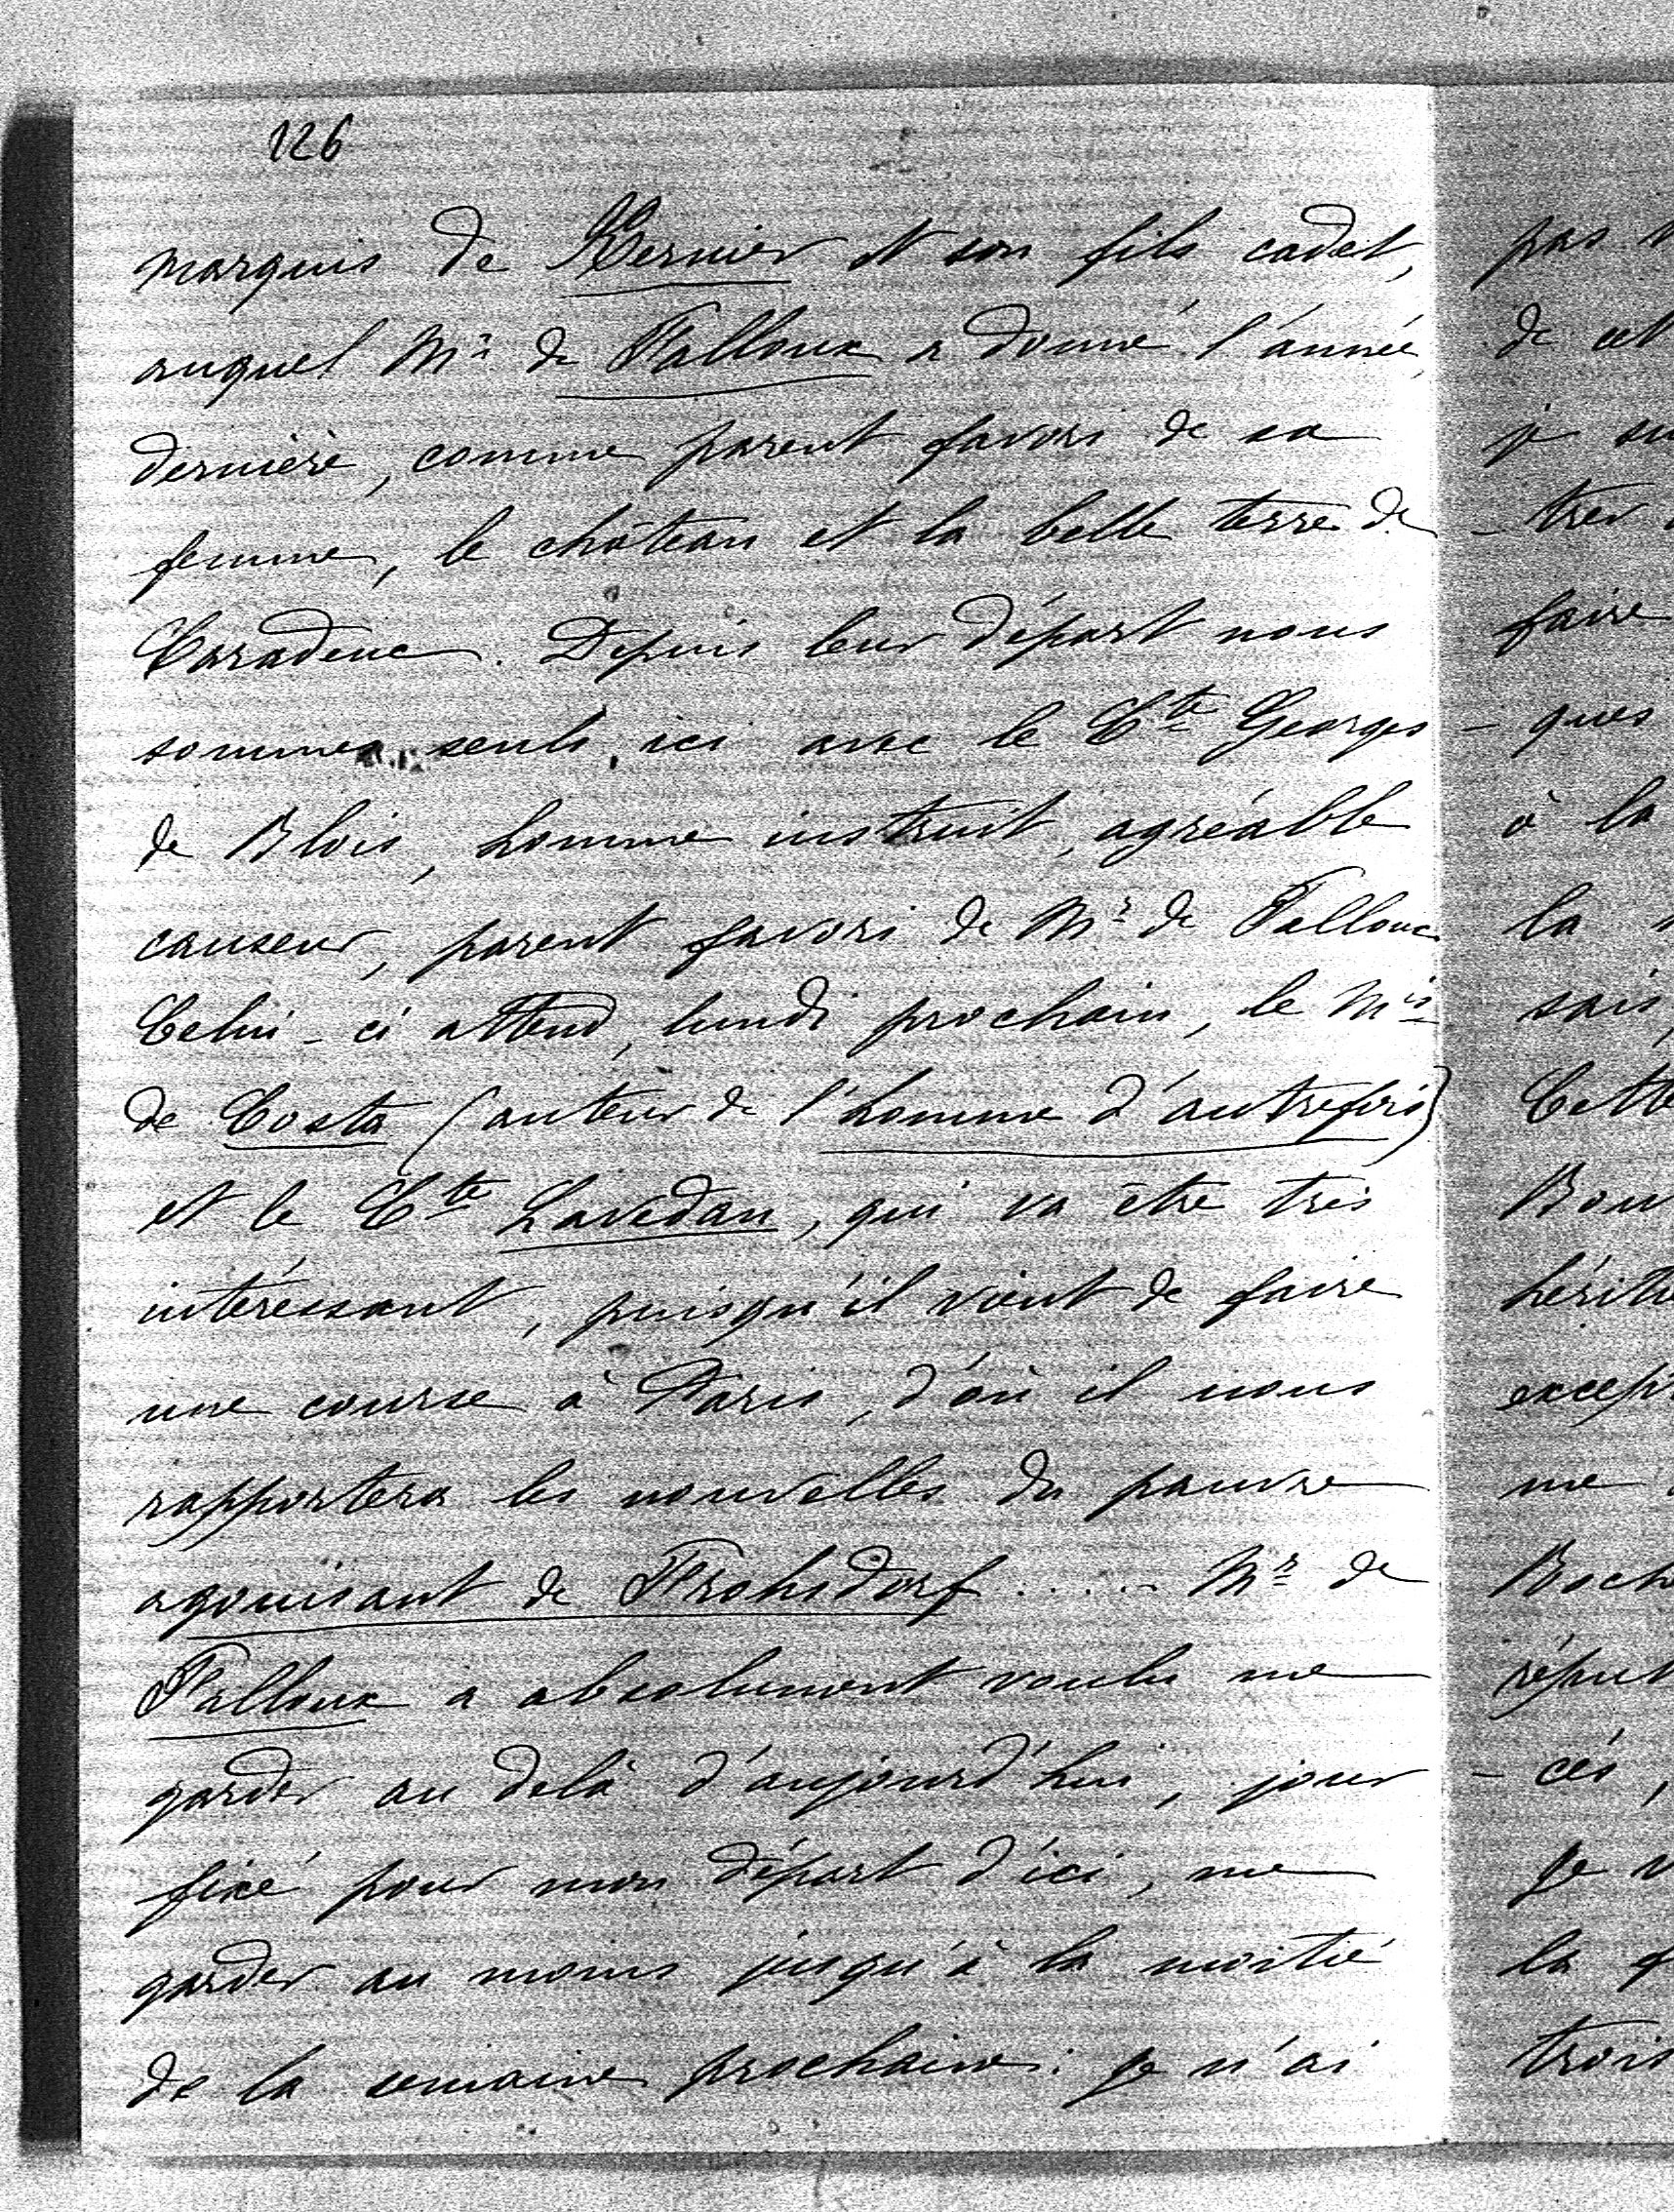 126
marquis de Kernier et son fils cadet,
auquel Mr de Falloux a donné l'année
dernière, comme parent favori de sa
femme, le château et la belle terre de
Caradeuc. Depuis leur départ nous
sommes seuls ici avec le Cte Georges
de Blois, homme instruit, agréable
causeur, parent favori de Mr de Falloux.
Celui-ci attend, lundi prochain, le Mis
de Costa (auteur de l'homme d'autrefois)
et le Cte Lavedan, qui va être très
intéressant, puisqu'il vient de faire
une course à Paris, d'où il nous
rapportera les nouvelles du pauvre
agonisant de Frohsdorf ..... Mr de
Falloux a absolument voulu me
garder au delà d'aujourd'hui, jour
fixé pour mon départ d'ici, me
garder au moins jusqu'à la moitié
de la semaine prochaine. Je n'ai
pas
de cet
je
-trer
faire
-ques
à la
la
sais
Cette
Bour
hérit
excep
me
Boch
réput
-cés,
Je
la
trois